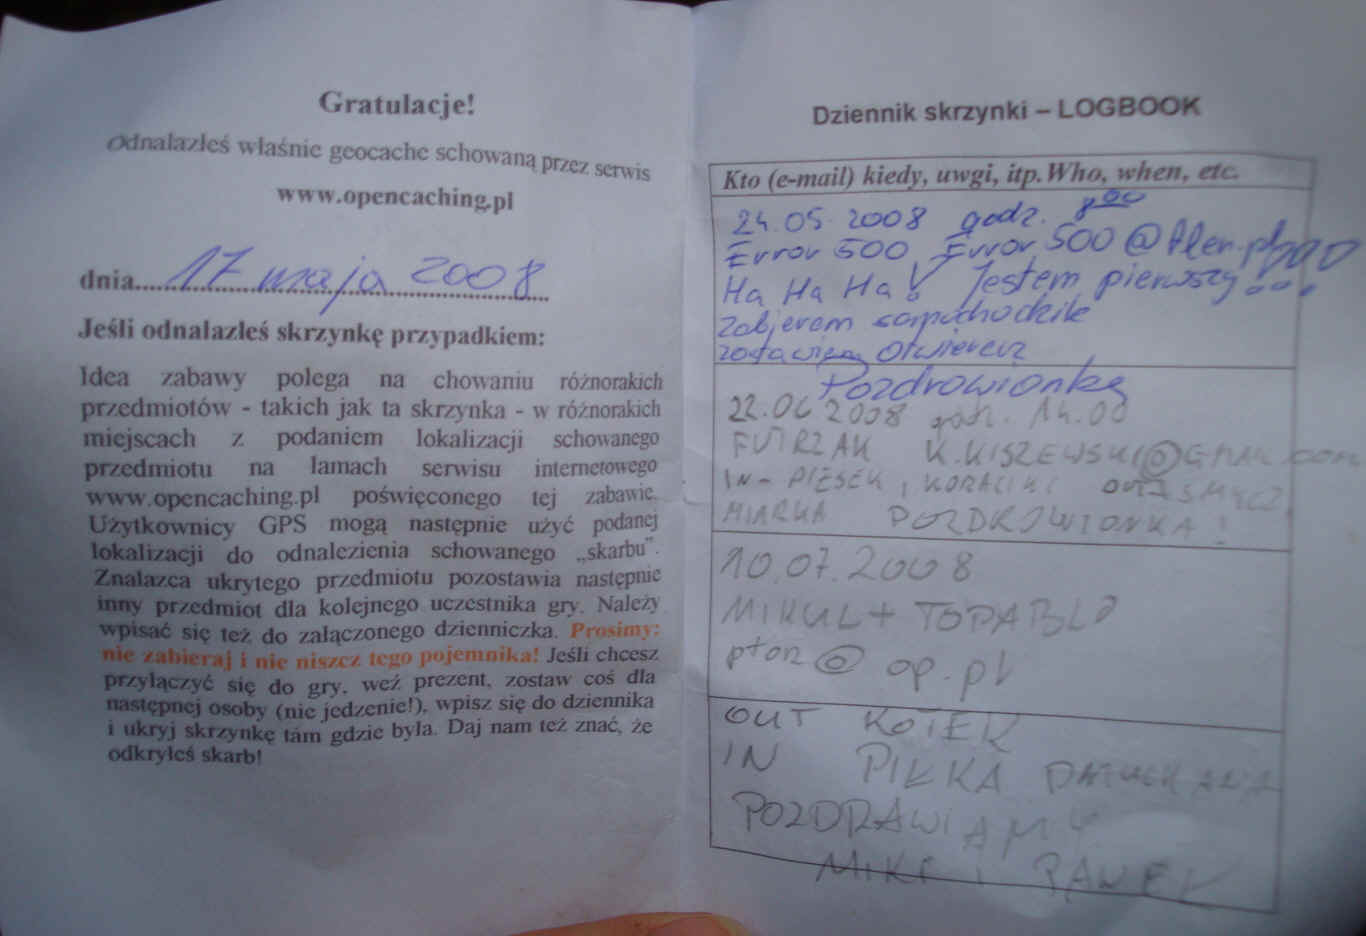 Gratulacje!
Odnalazłeś właśnie geocache schowaną przez serwis
www.opencaching.pl
dnia....17 maja 2008
Jeśli odnalazłeś skrzynkę przypadkiem:
Idea zabawy polega na chowaniu różnorakich
przedmiotów - takich jak ta skrzynka - w różnorakich
miejscach z podaniem lokalizacji schowanego
przedmiotu na łamach serwisu internetowego
www.opencaching.pl poświęconego tej zabawie.
Użytkownicy GPS mogą następnie użyć podanej
lokalizacji do odnalezienia schowanego „skarbu”.
Znalazca ukrytego przedmiotu pozostawia następnie
inny przedmiot dla kolejnego uczestnika gry. Należy
wpisać się też do załączonego dzienniczka. Prosimy:
nie zabieraj i nie niszcz tego pojemnika! Jeśli chcesz
przyłączyć się do gry, weź prezent, zostaw coś dla
następnej osoby (nie jedzenie!), wpisz się do dziennika
i ukryj skrzynkę tam gdzie była. Daj nam też znać, że
odkryłeś skarb!
Dziennik skrzynki – LOGBOOK
Kto (e-mail) kiedy, uwgi, itp. Who, when, etc.
24.05 2008 godz. 8 00
Error 500 Error 500 @
Ha Ha Ha! Jestem pierwszy...
zabieram samochodzik
zostawiam otwieracz
Pozdrowionka
22.06 2008 godz. 14.00
FUTRZAK K.KISZEWSKI@GMAIL.COM
IN - PIESEK, KORALIKI OUT SMYCZ,
MIARKA POZDROWIONKA!
10.07.2008
MIKUL + TOPABLO
pton@op.pl
OUT KOTEK
IN PIŁKA
POZDRAWIAMY
MIKI I PAWEŁ